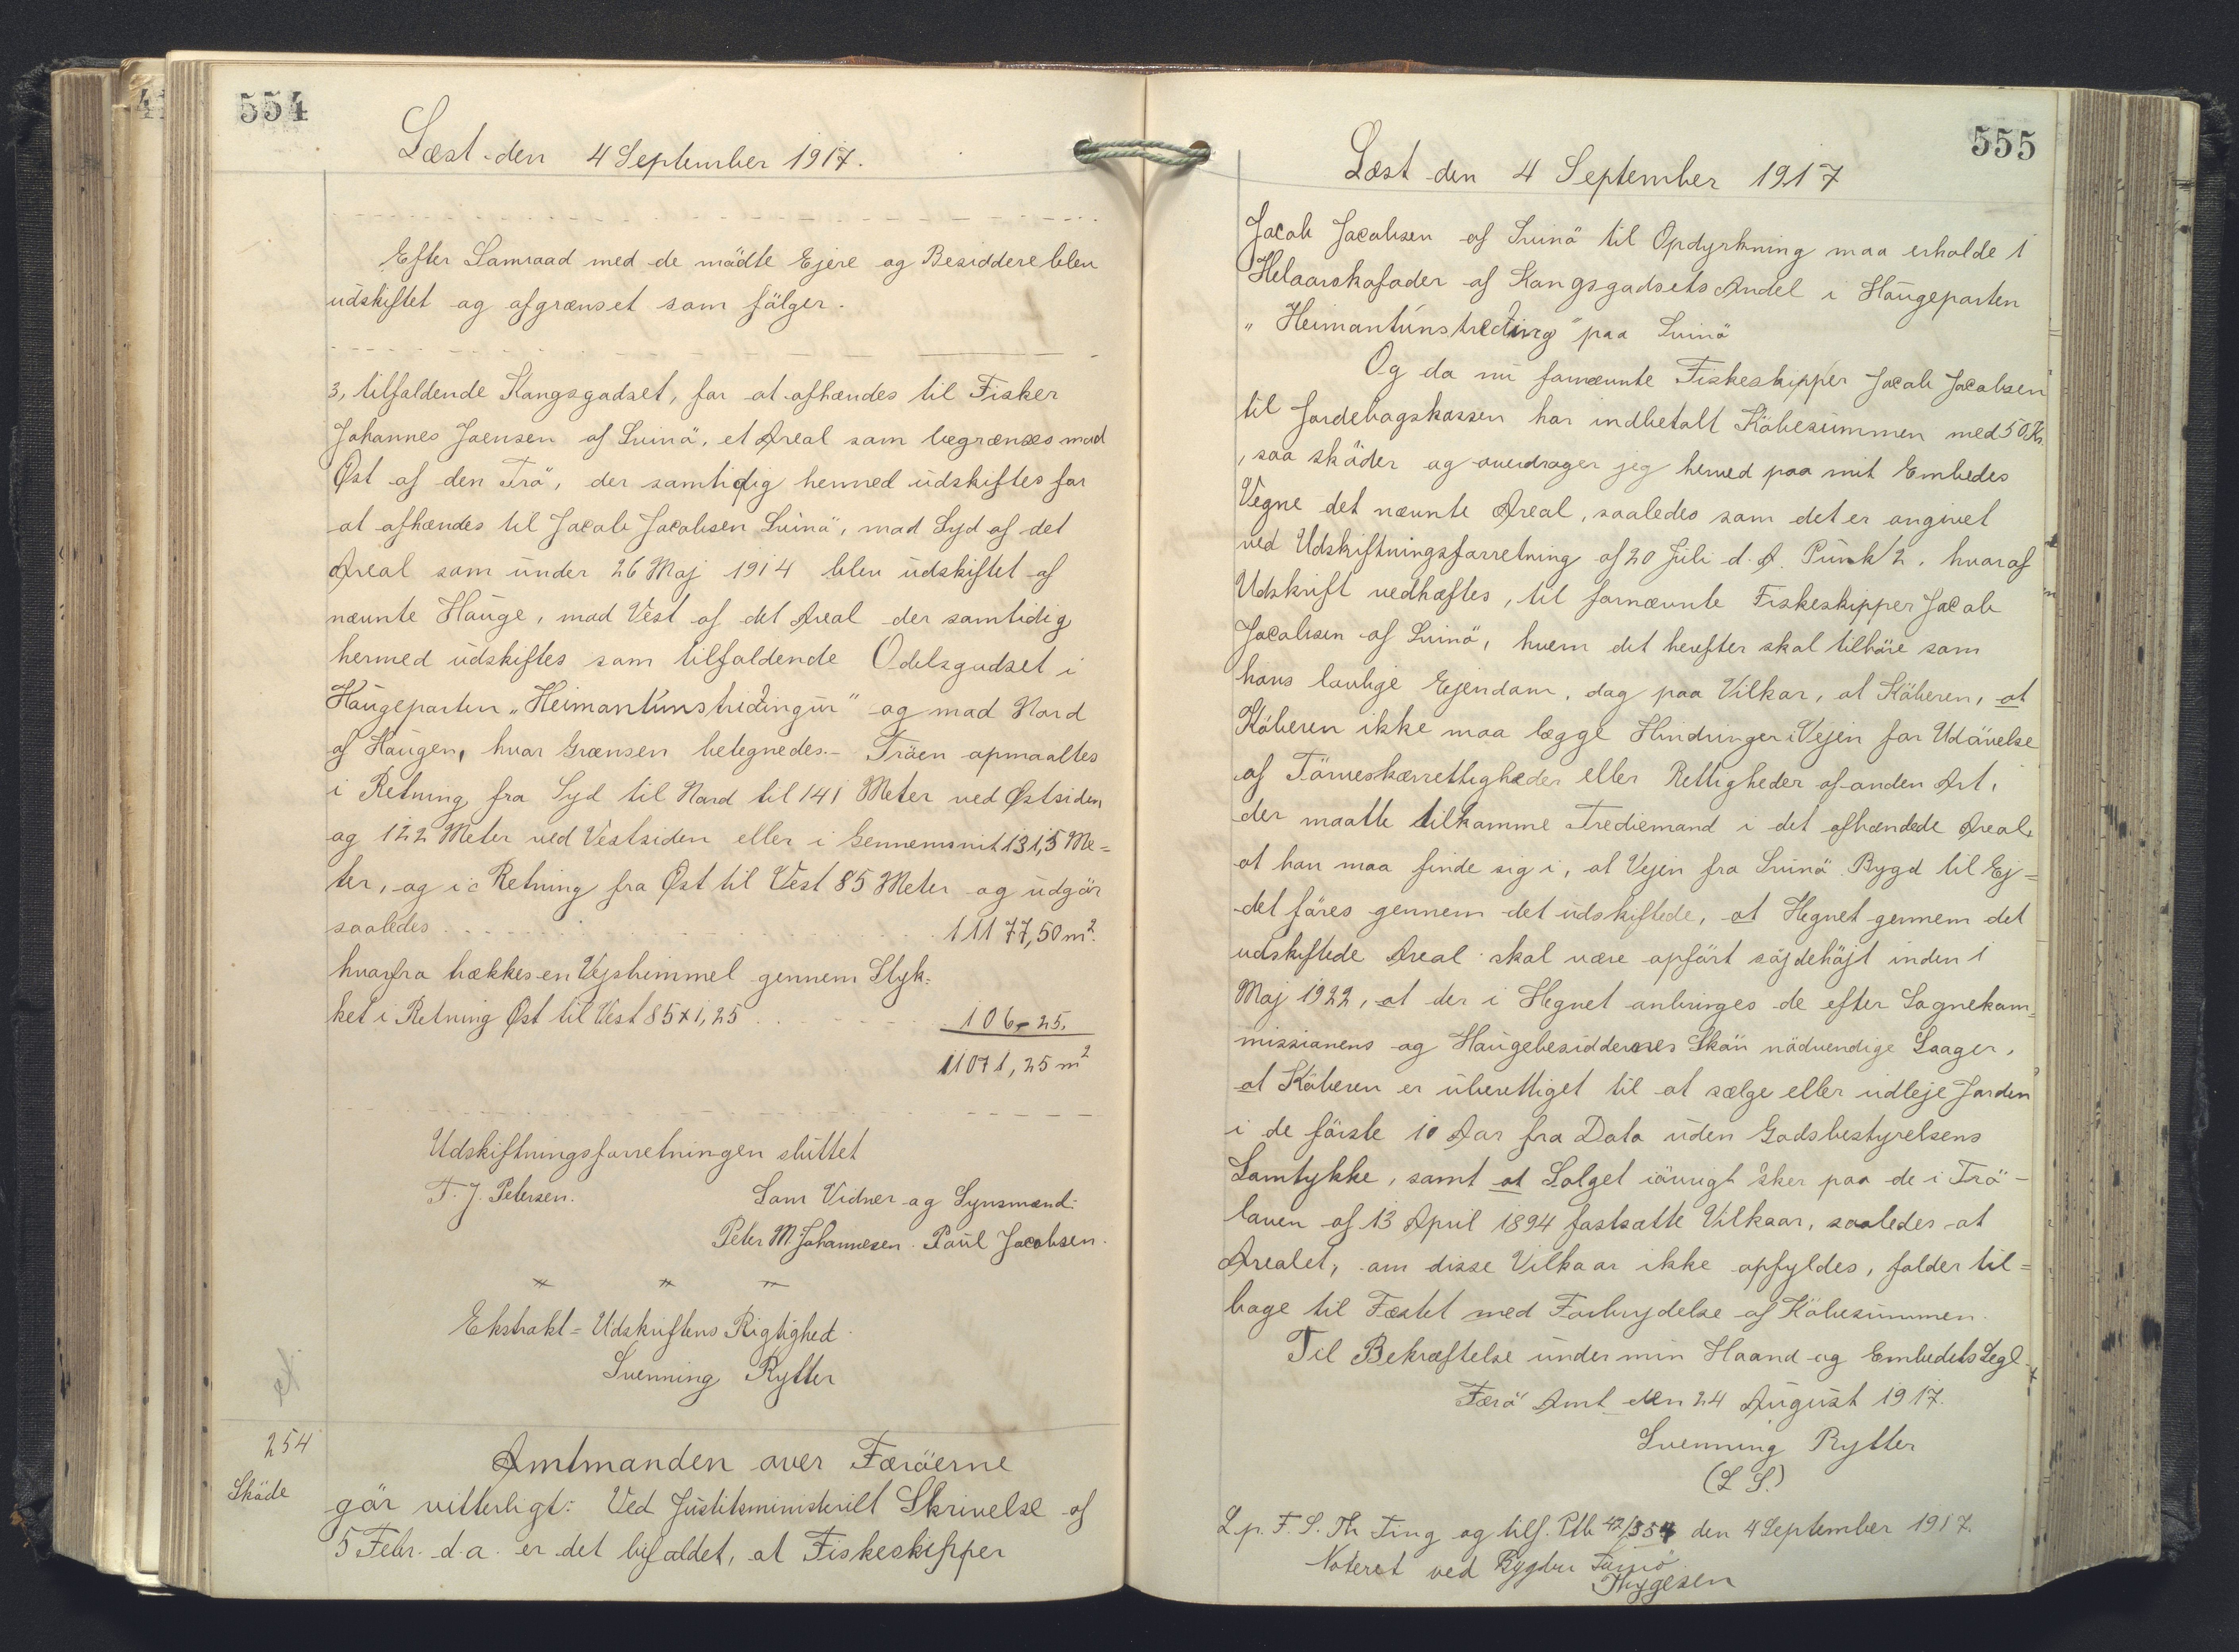 554
Læst den 4 September 1917.
Efter Samraad med de mödte Ejere og Besiddere blev
udskiftet og afgrænset som fölger.
3, tilfaldende Kongsgodset, for at afhændes til Fisker
Johannes Joensen af Svinö, et Areal som begrænses mod
Øst af den Trö, der samtidig hermed udskiftes for
at afhændes til Jacob Jacobsen Svinö, mod Syd af det
Areal som under 26 Maj 1914 blev udskiftet af
nævnte Hauge, mod Vest af det Areal der samtidig
hermed udskiftes som tilfaldende Odelsgodset i
Haugeparten "Heimantúnstridingur" og mod Nord
af Haugen, hvor Grænsen betegnedes.- Tröen opmaaltes
i Retning fra Syd til Nord til 141 Meter ved Østsiden
og 122 Meter ved Vestsiden eller i Gennemsnit 131,5 Me=
ter, og i Retning fra Øst til Vest 85 Meter og udgör
saaledes 11177,50 m².
hvorfra trækkes en Vejstrimmel gennem Styk=
ket i Retning Øst til Vest 85 x 1,25 106-25.
11071,25 m²
Udskiftningsforretningen sluttet
T. J. Petersen. Som Vidner og Synsmænd:
Peter M. Johannesen. Poul Jacobsen.
Ekstrakt-Udskriftens Rigtighed
Svenning Rytter
254
Sköde
Amtmanden over Færöerne
gör vitterligt: Ved Justitsministeriets Skrivelse af
5 Febr. d.a. er det bifaldet, at Fiskeskipper
555
Læst den 4 September 1917
Jacob Jacobsen af Svinö til Opdyrkning maa erholde 1
Helaarskofoder af Kongsgodsets Andel i Haugeparten
"Heimantúnstreding" paa Svinö
Og da nu fornævnte Fiskeskipper Jacob Jacobsen
til Jordebogskassen har indbetalt Köbesummen med 50 Kr.
, saa sköder og overdrager jeg herved paa mit Embedes
Vegne det nævnte Areal, saaledes som det er angivet
ved Udskiftningsforretning af 20 Juli d. A. Punkt 2, hvoraf
Udskrift vedhæftes, til fornævnte Fiskeskipper Jacob
Jacobsen af Svinö, hvem det herefter skal tilhöre som
hans lovlige Ejendom, dog paa Vilkar, at Köberen, at
Köberen ikke maa lægge Hindringer i Vejen for Udövelse
af Törveskærrettigheder eller Rettigheder af anden Art,
der maatte tilkomme Trediemand i det afhændede Areal,
at han maa finde sig i, at Vejen fra Svinö Bygd til Ej=
det föres gennem det udskiftede, at Hegnet gennem det
udskiftede Areal skal være opfört söjdehöjt inden 1
Maj 1922, at der i Hegnet anbringes de efter Sognekom=
missionens og Haugebesiddernes Skön nödvendige Laager,
at Köberen er uberettiget til at sælge eller udleje Jorden
i de förste 10 Aar fra Dato uden Godsbestyrelsens
Samtykke, samt at Salget iövrigt sker paa de i Trö-
loven af 13 April 1894 fastsatte Vilkaar, saaledes at
Arealet, om disse Vilkaar ikke opfyldes, falder til=
bage til Fæstet med Forbrydelse af Köbesummen.
Til Bekræftelse under min Haand og Embedets Segl.
Færö Amt den 24 August 1917.
Svenning Rytter
(L S.)
L. p. F. S. Th Ting og tilf. Ptb 42/354 den 4 September 1917.
Noteret ved Bygden
Thygesen